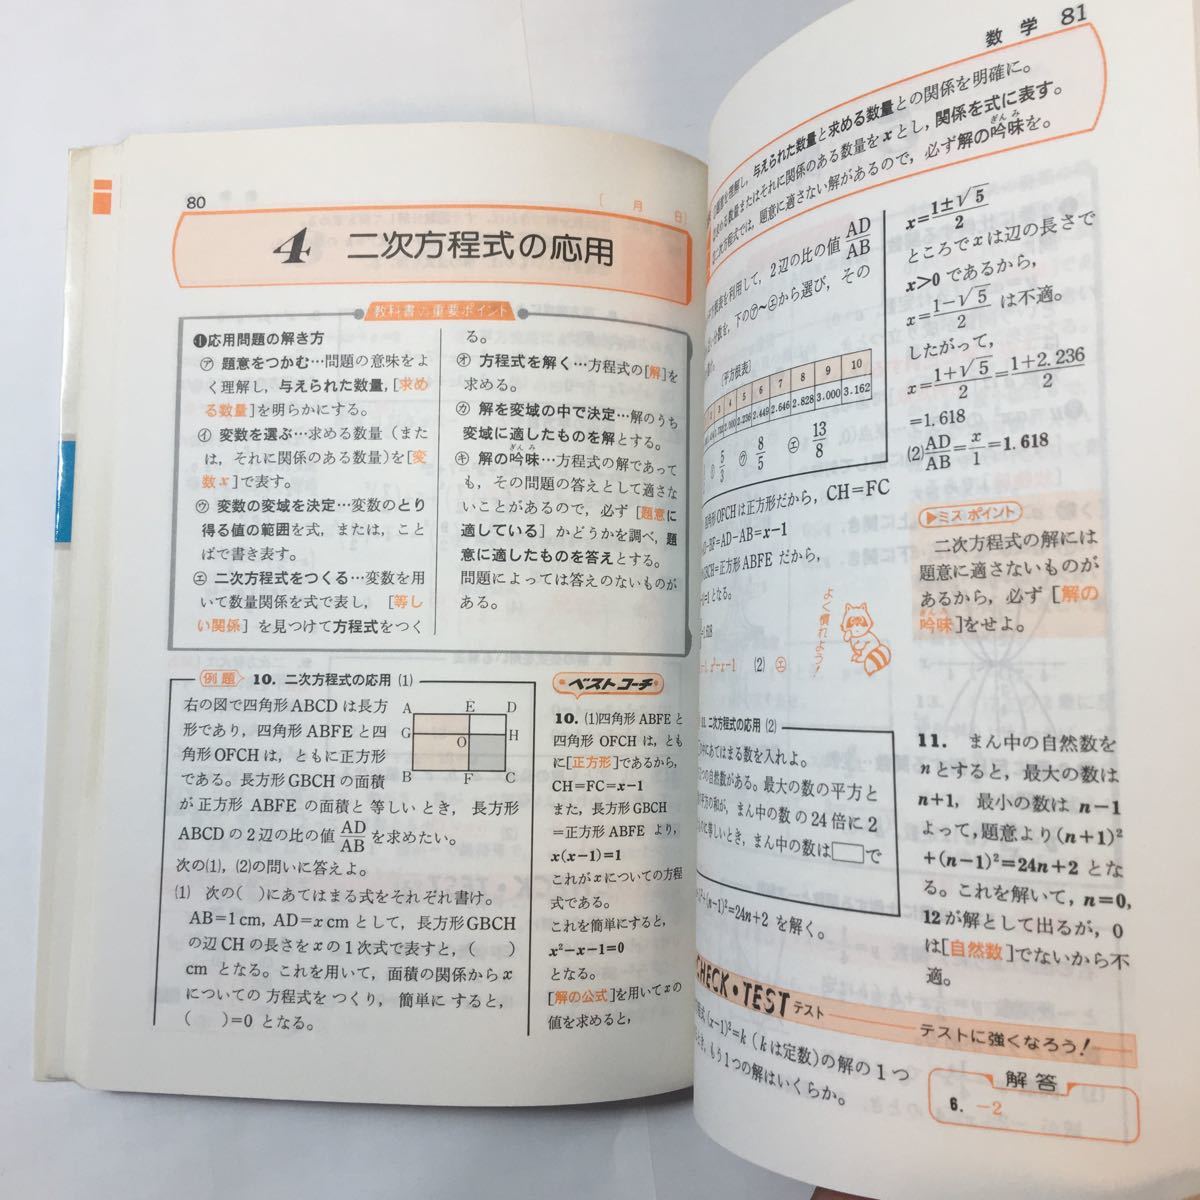 80
〔 月 日〕
4 二次方程式の応用
教科書の重要ポイント
❶応用問題の解き方
㋐ 題意をつかむ…問題の意味をよ
く理解し,与えられた数量,[求め
る数量]を明らかにする。
㋑ 変数を選ぶ…求める数量(また
は,それに関係のある数量)を[変
数x]で表す。
㋒ 変数の変域を決定…変数のとり
得る値の範囲を式,または,こと
ばで書き表す。
㋓ 二次方程式をつくる…変数を用
いて数量関係を式で表し,[等し
い関係]を見つけて方程式をつく
る。
㋔ 方程式を解く…方程式の[解]を
求める。
㋕ 解を変域の中で決定…解のうち
変域に適したものを解とする。
㋖ 解の吟味…方程式の解であって
ぎんみ
も,その問題の答えとして適さな
いことがあるので,必ず[題意に
適している]かどうかを調べ,題
意に適したものを答えとする。
問題によっては答えのないものが
ある。
例題 10. 二次方程式の応用 (1)
右の図で四角形ABCDは長方
形であり,四角形ABFEと四
角形OFCHは,ともに正方形
である。長方形GBCHの面積
が正方形ABFEの面積と等しいとき,長方形
ABCDの2辺の比の値AD/ABを求めたい。
次の(1),(2)の問いに答えよ。
(1) 次の( )にあてはまる式をそれぞれ書け。
AB=1cm,AD=xcmとして,長方形GBCH
の辺CHの長さをxの1次式で表すと,( )
cmとなる。これを用いて,面積の関係からx
についての方程式をつくり,簡単にすると,
( )=0となる。
A E D
G O H
B F C
ベストコーチ
10. (1)四角形ABFEと
四角形OFCHは,とも
に[正方形]であるから,
CH=FC=x−1
また,長方形GBCH
=正方形ABFEより,
x(x−1)=1
これがxについての方程
式である。
これを簡単にすると,
x²−x−1=0
となる。
[解の公式]を用いてxの
値を求めると,
数学 81
題を理解し,与えられた数量と求める数量との関係を明確に。
求める数量またはそれに関係のある数量をxとし,関係を式に表す。
二次方程式では,題意に適さない解があるので,必ず解の吟味を。
ぎんみ
を利用して,2辺の比の値AD/AB
を,下の㋐〜㋓から選び,その
〔平方根表〕
2 3 4 5 6 7 8 9 10
2.000 2.236 2.449 2.646 2.828 3.000 3.162
㋑ 5/3 ㋒ 8/5 ㋓ 13/8
角形OFCHは正方形だから,CH=FC
BF=AD−AB=x−1
GBCH=正方形ABFEだから,
となる。
x²−x−1 (2) ㋓
よく慣れよう!
11. 二次方程式の応用 (2)
中にあてはまる数を入れよ。
つの自然数がある。最大の数の平方と
平方の和が,まん中の数の24倍に2
に等しいとき,まん中の数は□で
+(n−1)²=24n+2を解く。
CHECK・TEST テスト
テストに強くなろう!
式(x−1)²=k(kは定数)の解の1つ
とき,もう1つの解はいくらか。
x=(1±√5)/2
ところでxは辺の長さで
x>0であるから,
x=(1−√5)/2は不適。
したがって,
x=(1+√5)/2=(1+2.236)/2
=1.618
(2)AD/AB=x/1=1.618
▶ミスポイント
二次方程式の解には
題意に適さないものが
あるから,必ず[解の
吟味]をせよ。
ぎんみ
11. まん中の自然数を
nとすると,最大の数は
n+1,最小の数はn−1
よって,題意より(n+1)²
+(n−1)²=24n+2とな
る。これを解いて,n=0,
12が解として出るが,0
は[自然数]でないから不
適。
解答
6. −2